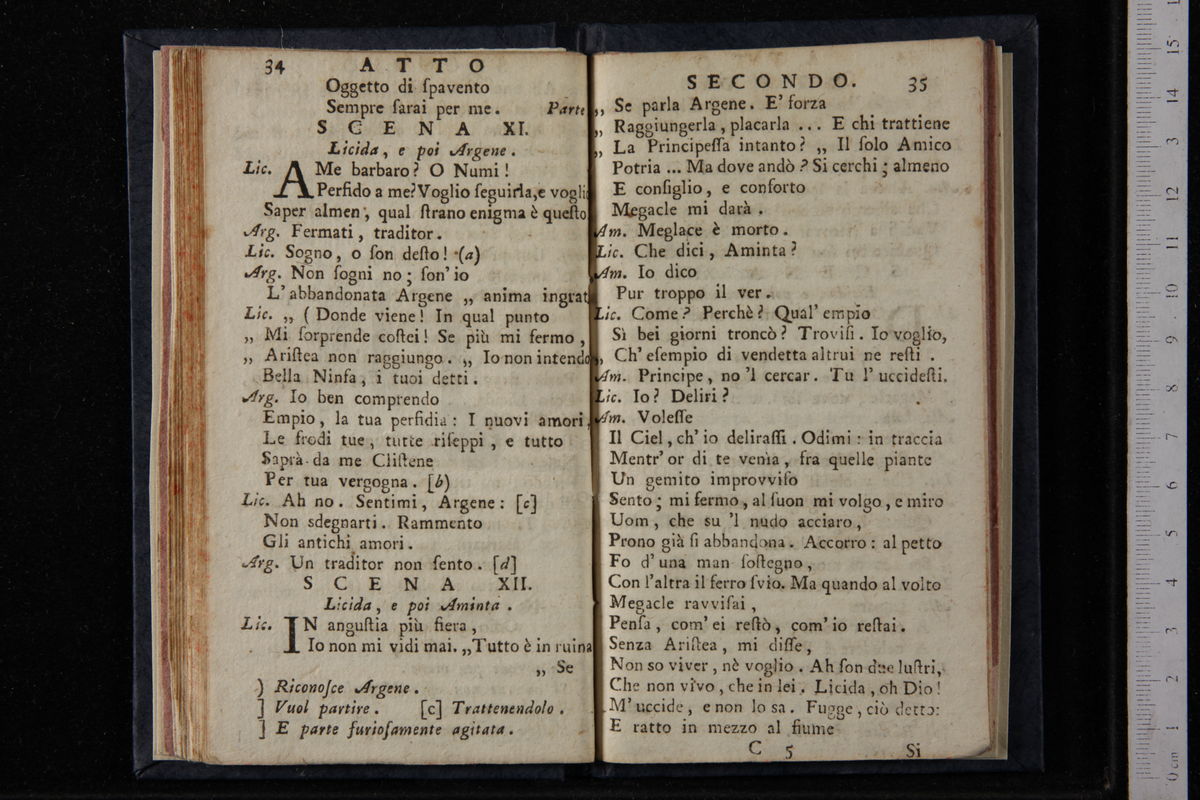 34 ATTO
Oggetto di ſpavento
Sempre ſarai per me. Parte
SCENA XI.
Licida, e poi Argene.
Lic. A Me barbaro? O Numi!
Perfido a me? Voglio ſeguirla, e voglio
Saper almen, qual ſtrano enigma è queſto
Arg. Fermati, traditor.
Lic. Sogno, o ſon deſto! (a)
Arg. Non ſogni no; ſon' io
L' abbandonata Argene „ anima ingrat
Lic. „ (Donde viene! In qual punto
„ Mi ſorprende coſtei! Se più mi fermo,
„ Ariſtea non raggiungo. „ Io non intendo
Bella Ninfa, i tuoi detti.
Arg. Io ben comprendo
Empio, la tua perfidia: I nuovi amori,
Le frodi tue, tutte riſeppi, e tutto
Saprà da me Cliſtene
Per tua vergogna. [b)
Lic. Ah no. Sentimi, Argene: [c]
Non sdegnarti. Rammento
Gli antichi amori.
Arg. Un traditor non ſento. [d]
SCENA XII.
Licida, e poi Aminta.
Lic. IN anguſtia più fiera,
Io non mi vidi mai. „Tutto è in ruina
„ Se
) Riconoſce Argene.
] Vuol partire. [c] Trattenendolo.
] E parte furioſamente agitata.
SECONDO. 35
„ Se parla Argene. E' forza
„ Raggiungerla, placarla ... E chi trattiene
„ La Principeſſa intanto? „ Il ſolo Amico
Potria ... Ma dove andò? Si cerchi; almeno
E conſiglio, e conforto
Megacle mi darà.
Am. Meglace è morto.
Lic. Che dici, Aminta?
Am. Io dico
Pur troppo il ver.
Lic. Come? Perchè? Qual' empio
Sì bei giorni troncò? Troviſi. Io voglio,
„ Ch' eſempio di vendetta altrui ne reſti.
Am. Principe, no 'l cercar. Tu l' uccideſti.
Lic. Io? Deliri?
Am. Voleſſe
Il Ciel, ch' io deliraſſi. Odimi: in traccia
Mentr' or di te venìa, fra quelle piante
Un gemito improvviſo
Sento; mi fermo, al ſuon mi volgo, e miro
Uom, che su 'l nudo acciaro,
Prono già ſi abbandona. Accorro: al petto
Fo d' una man ſoſtegno,
Con l'altra il ferro ſvio. Ma quando al volto
Megacle ravviſai,
Penſa, com' ei reſtò, com' io reſtai.
Senza Ariſtea, mi diſſe,
Non so viver, nè voglio. Ah ſon due luſtri,
Che non vivo, che in lei. Licida, oh Dio!
M' uccide, e non lo sa. Fugge, ciò detto:
E ratto in mezzo al fiume
C 5 Si
0 cm 1 2 3 4 5 6 7 8 9 10 11 12 13 14 15